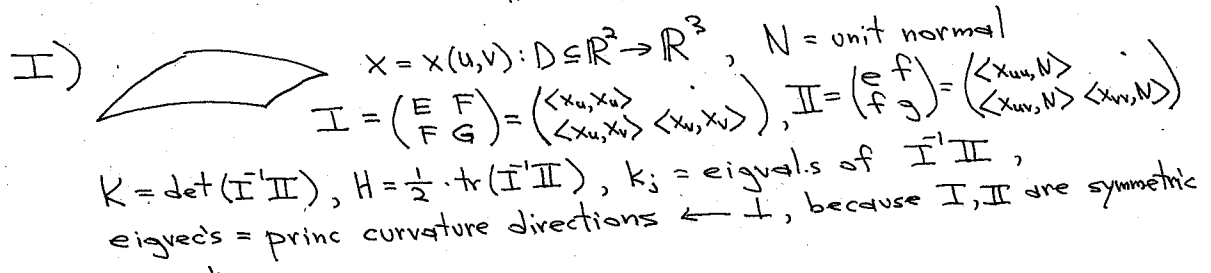 I) X = X(u,v): D ⊆ ℝ² → ℝ³, N = unit normal
I = (E F / F G) = (<Xu,Xu> · / <Xu,Xv> <Xv,Xv>), II = (e f / f g) = (<Xuu,N> · / <Xuv,N> <Xvv,N>)
K = det(I⁻¹II), H = ½·tr(I⁻¹II), kj = eigvals of I⁻¹II,
eigvec's = princ curvature directions ← ⊥, because I, II are symmetric